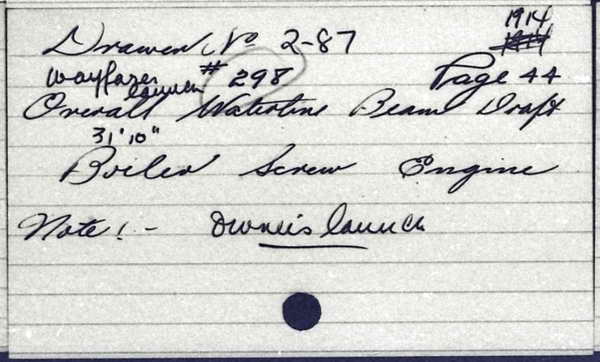 1914
Drawer No 2-87
Wayfarer launch # 298 Page 44
Overall Waterline Beam Draft
31'10"
Boiler Screw Engine
Note! - Owner's launch